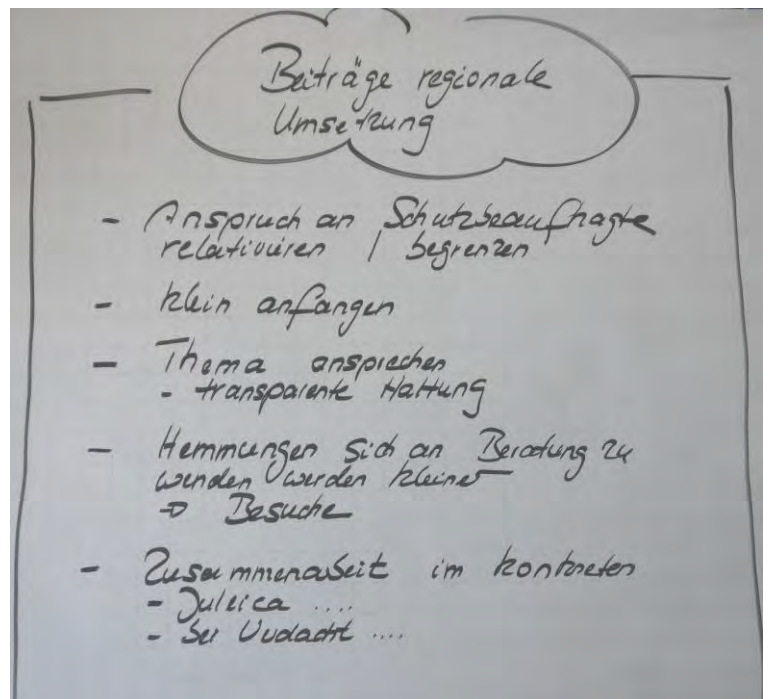 Beiträge regionale
Umsetzung
- Anspruch an Schutzbeauftragte
relativieren / begrenzen
- klein anfangen
- Thema ansprechen
- transparente Haltung
- Hemmungen sich an Beratung zu
wenden werden kleiner
→ Besuche
- Zusammenarbeit im konkreten
- Juleica ....
- bei Verdacht ....